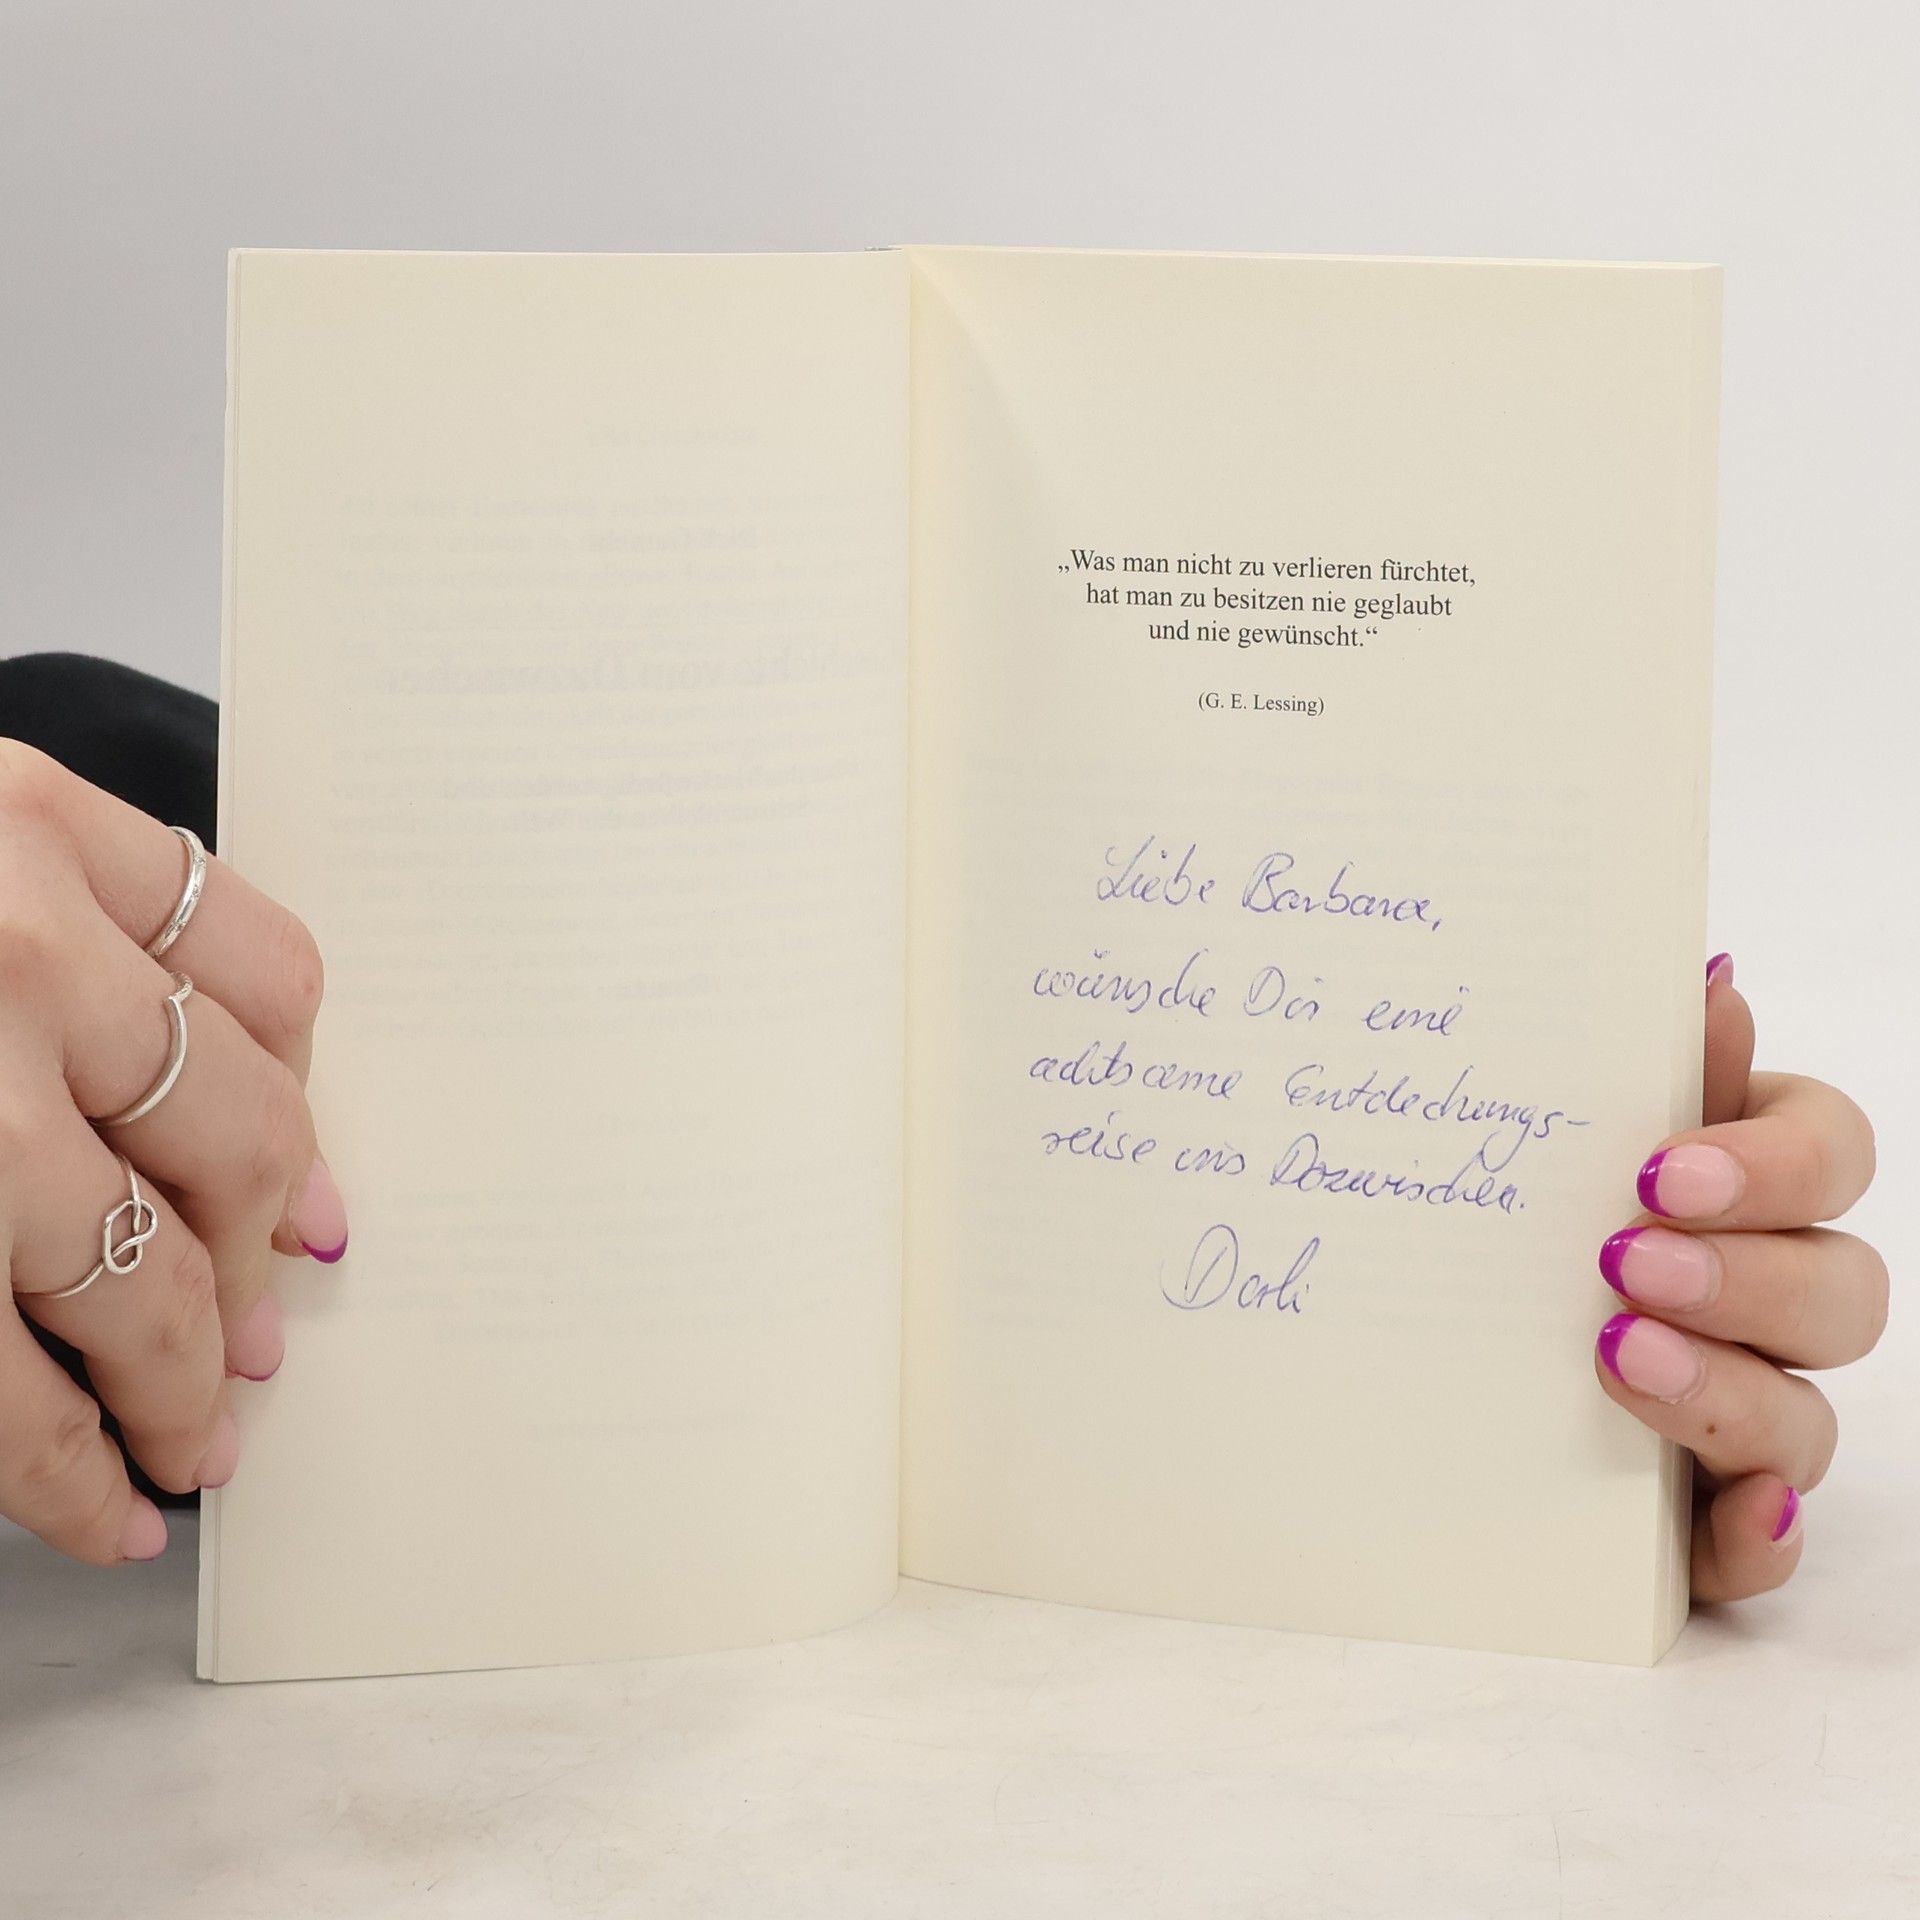 „Was man nicht zu verlieren fürchtet,
hat man zu besitzen nie geglaubt
und nie gewünscht.“
(G. E. Lessing)
Liebe Barbara,
wünsche Dir eine
achtsame Entdeckungs-
reise ins Dazwischen.
Dorli